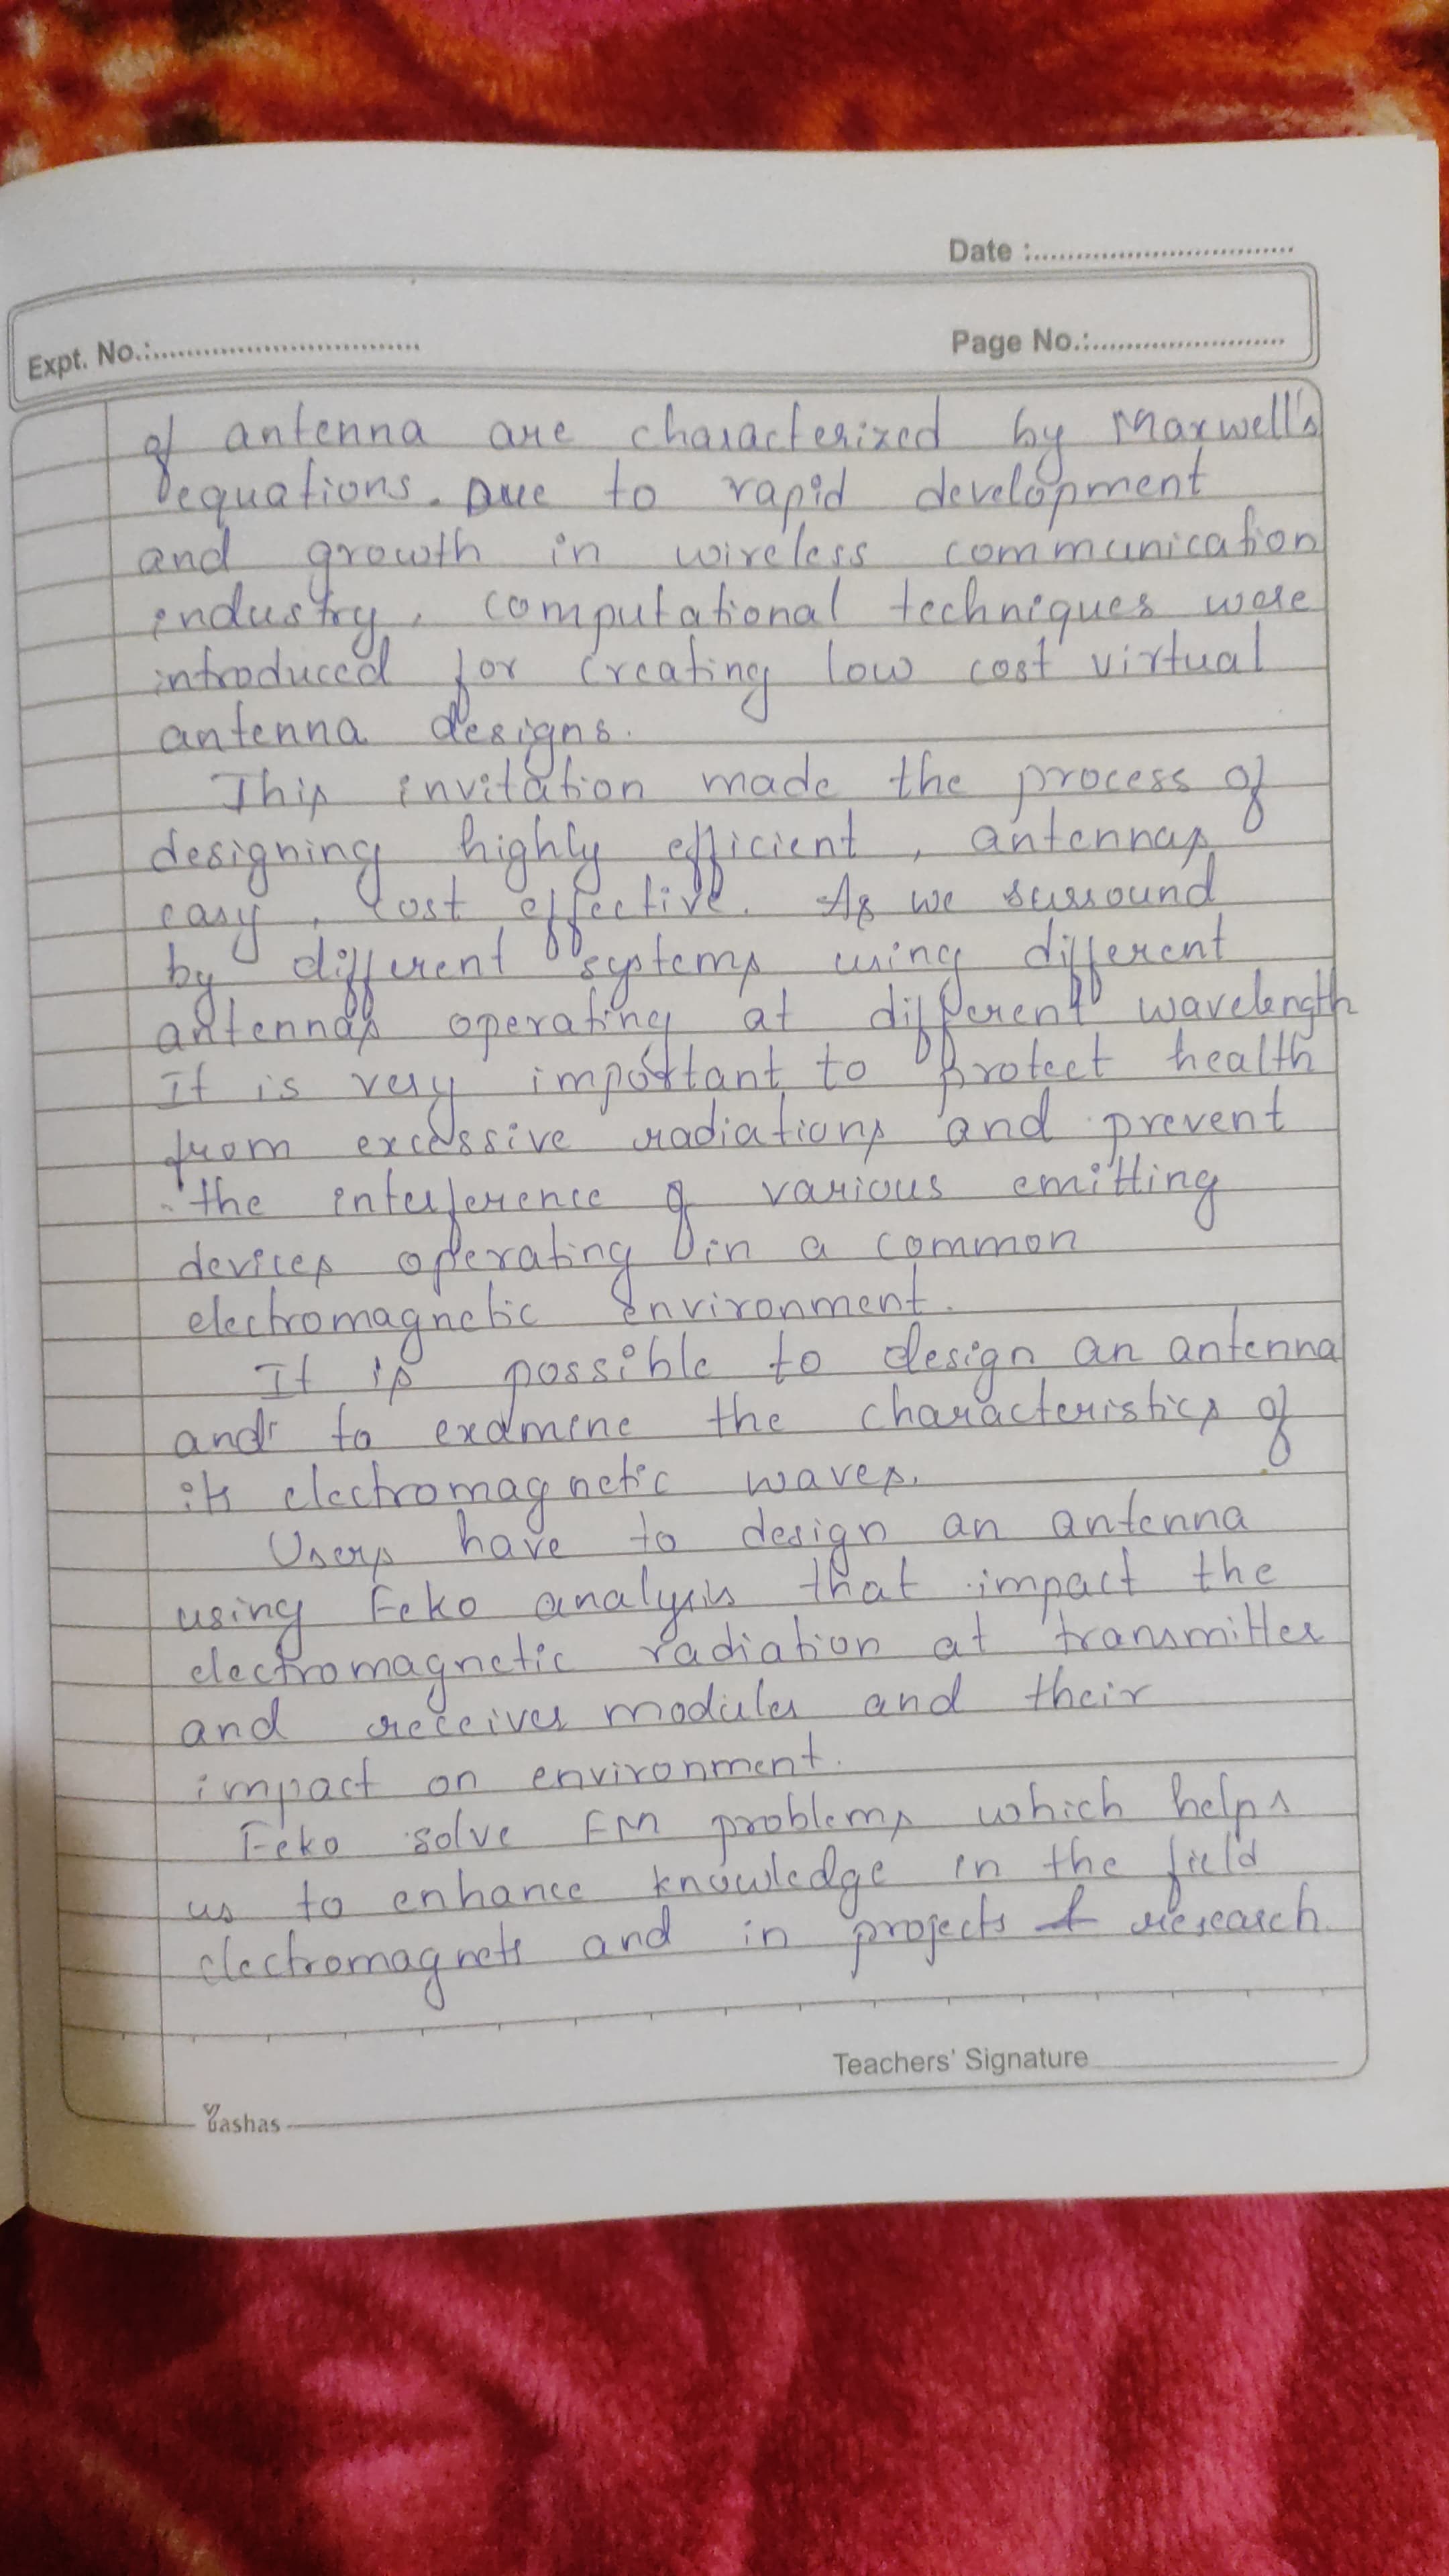 Date :
Expt. No.:
Page No.:
of antenna are characterized by Maxwell's
equations. Due to rapid development
and growth in wireless communication
industry, computational techniques were
introduced for creating low cost virtual
antenna designs.
This invitation made the process of
designing highly efficient, antennas
easy, cost effective. As we surround
by different systems using different
antennas operating at different wavelength
It is very important to protect health
from excessive radiations and prevent
the interference of various emitting
devices operating in a common
electromagnetic environment.
It is possible to design an antenna
and to examine the characteristics of
its electromagnetic waves.
Users have to design an antenna
using Feko analysis that impact the
electromagnetic radiation at transmitter
and receiver modules and their
impact on environment.
Feko solve EM problems which helps
us to enhance knowledge in the field
electromagnets and in projects & research
Teachers' Signature
Yashas